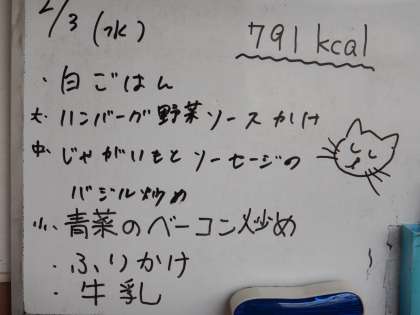 2/3 (水)
791 kcal
・白ごはん
大・ハンバーグ野菜ソースかけ
中・じゃがいもとソーセージの
バジル炒め
小・青菜のベーコン炒め
・ふりかけ
・牛乳